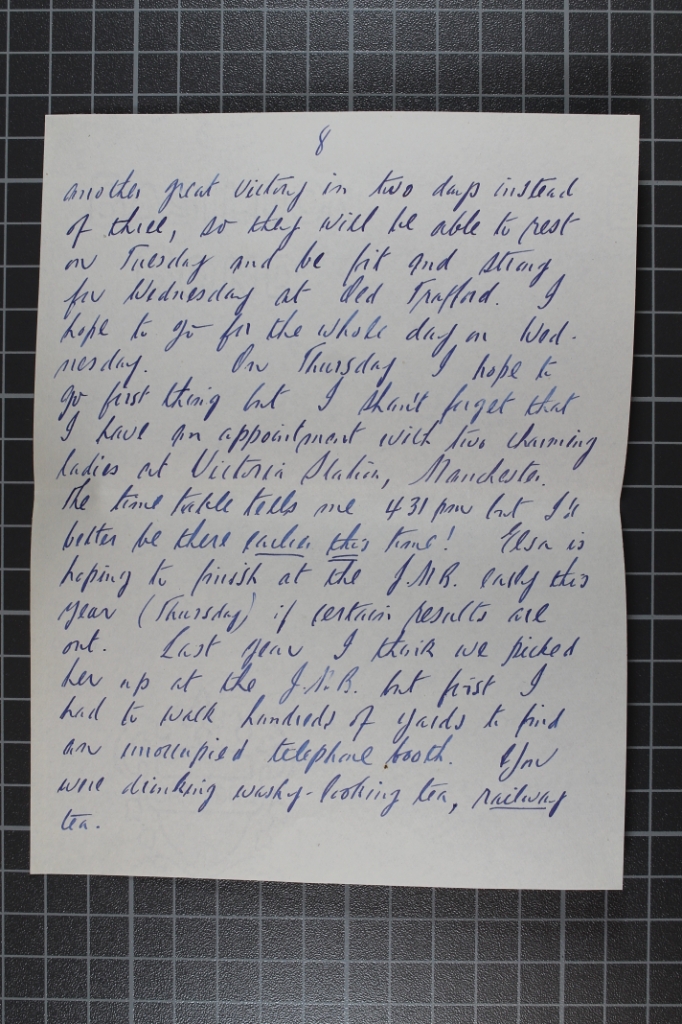 8
another great victory in two days instead
of three, so they will be able to rest
on Tuesday and be fit and strong
for Wednesday at Old Trafford. I
hope to go for the whole day on Wed-
nesday. On Thursday I hope to
go first thing but I shan't forget that
I have an appointment with two charming
ladies at Victoria Station, Manchester.
The time table tells me 4 31 pm but I'd
better be there earlier this time! Elsa is
hoping to finish at the J.M.B. early this
year (Thursday) if certain results are
out. Last year I think we picked
her up at the J.M.B. but first I
had to walk hundreds of yards to find
an unoccupied telephone booth. You
were drinking washy-looking tea, railway
tea.